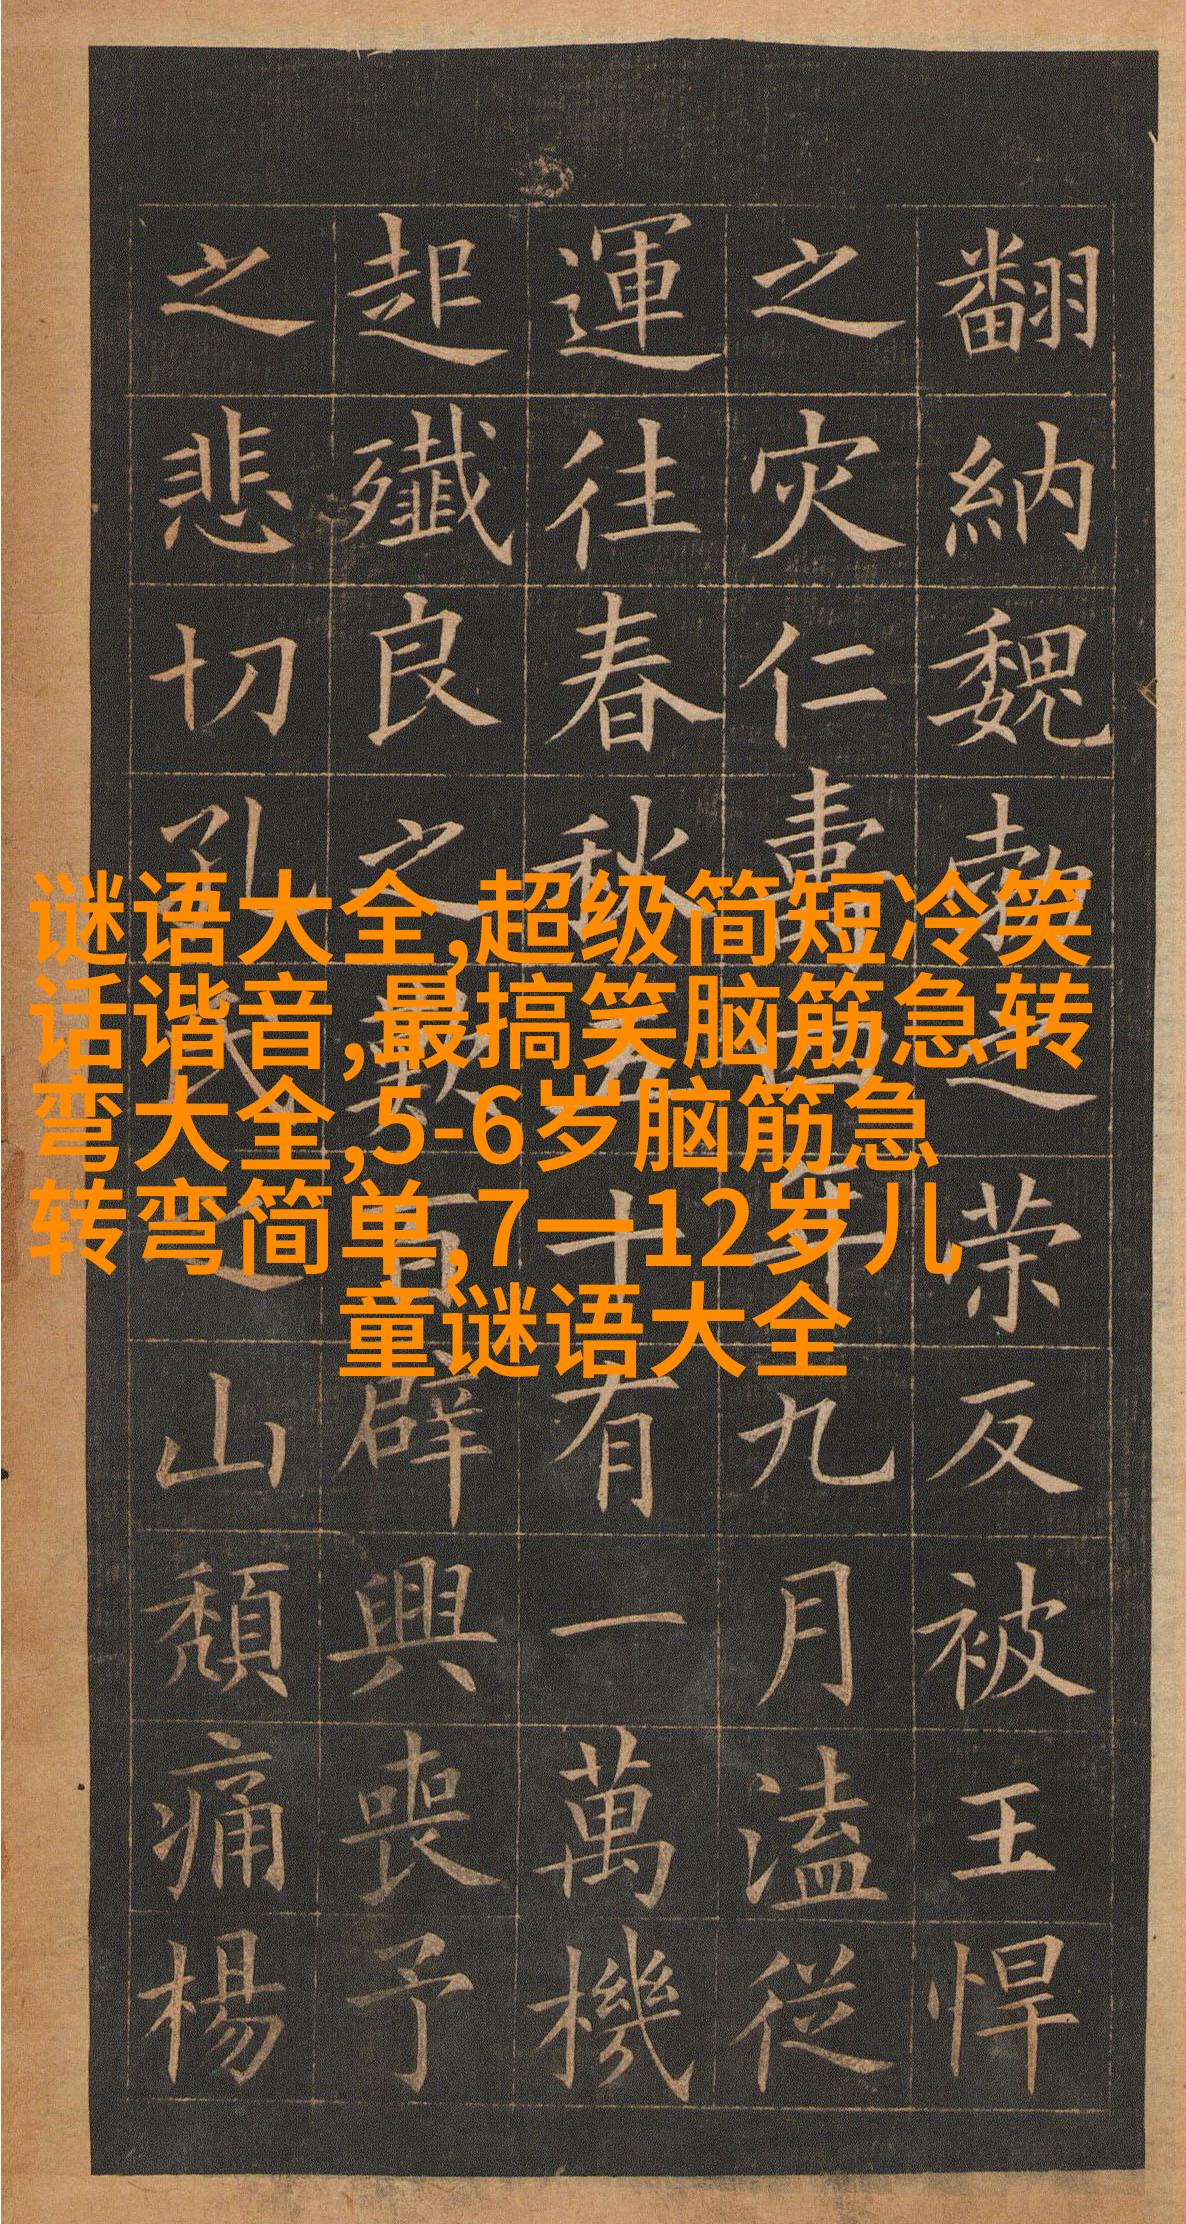 翻納魏勃之荣反被王悍
之灾仁壽四年九月溘從
運往春秋五十有一萬機
起殲良之歎百辟興喪予
之悲切孔氏之山頹痛楊
谜语大全,超级简短冷笑
话谐音,最搞笑脑筋急转
弯大全,5-6岁脑筋急
转弯简单,7一12岁儿
童谜语大全